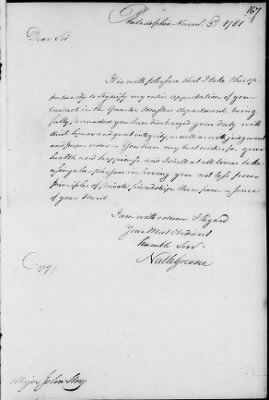 167
Philadelphia Novem. 3d. 1780
Dear Sir
It is with pleasure that I take this op-
portunity to signify my entire approbation of your
conduct in the Quarter Masters department being
fully persuaded you have discharged your duty with
and great integrity as well as with judgment
and propriety - You have my best wishes for your
health and happiness and I shall at all times take
a singular pleasure in serving you not less from
principles of private friendship than from a sense
of your Merit.
I am with esteem & Regard
Your Most Obedient
humble Serv
Nath Greene
Copy
Major John Story